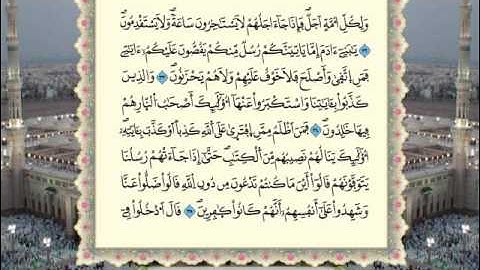 وَلِكُلِّ أُمَّةٍ أَجَلٌ فَإِذَا جَآءَ اجَلُهُمْ لَا يَسْتَاخِرُونَ سَاعَةً وَلَا يَسْتَقْدِمُونَ
يَٰبَنِےٓ ءَادَمَ إِمَّا يَاتِيَنَّكُمْ رُسُلٌ مِّنكُمْ يَقُصُّونَ عَلَيْكُمُۥٓ ءَايَٰتِے
فَمَنِ اِتَّقَىٰ وَأَصْلَحَ فَلَا خَوْفٌ عَلَيْهِمْ وَلَا هُمْ يَحْزَنُونَ وَالذِينَ
كَذَّبُواْ بِـَٔايَٰتِنَا وَاسْتَكْبَرُواْ عَنْهَآ أُوْلَٰٓئِكَ أَصْحَٰبُ اُ۬لنّ۪ارِ هُمْ
فِيهَا خَٰلِدُونَ فَمَنَ اَظْلَمُ مِمَّنِ اِ۪فْتَر۪ىٰ عَلَى اَ۬للَّهِ كَذِباً اَوْ كَذَّبَ بِـَٔايَٰتِهِۦٓ
أُوْلَٰٓئِكَ يَنَالُهُمْ نَصِيبُهُم مِّنَ اَ۬لْكِتَٰبِ حَتَّىٰٓ إِذَا جَآءَتْهُمْ رُسُلُنَا
يَتَوَفَّوْنَهُمْ قَالُوٓاْ أَيْنَ مَا كُنتُمْ تَدْعُونَ مِن دُونِ اِ۬للَّهِ قَالُواْ ضَلُّواْ عَنَّا
وَشَهِدُواْ عَلَىٰٓ أَنفُسِهِمُۥٓ أَنَّهُمْ كَانُواْ كٰ۪فِرِينَ قَالَ اَ۟دْخُلُواْ فِےٓ